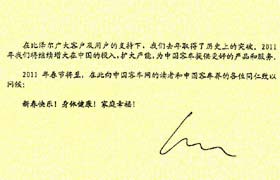 在比泽尔广大客户及用户的支持下，我们去年取得了历史上的突破。2011
年我们将继续增大在中国的投入，扩大产能，为中国客车提供更好的产品和服务。
2011 年春节将至，在此向中国客车网的读者和中国客车界的各位同仁致以
问候：
新春快乐！身体健康！家庭幸福！